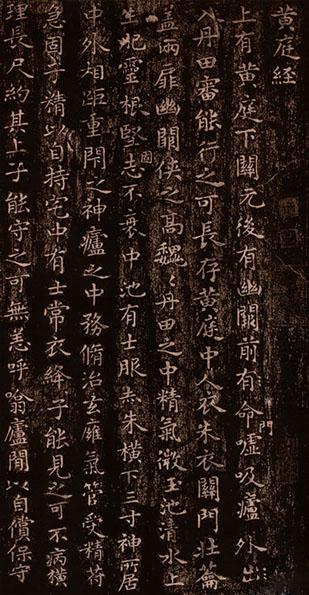 黄庭經
上有黄庭下關元後有幽闕前有命門噓吸廬外出
入丹田審能行之可長存黄庭中人衣朱衣關門壯籥
蓋兩扉幽闕俠之高魏魏丹田之中精氣微玉池清水上
生肥靈根堅固志不衰中池有士服赤朱橫下三寸神所居
中外相距重閇之神廬之中務脩治玄廱氣管受精苻
急固子精以自持宅中有士常衣絳子能見之可不病橫
理長尺約其上子能守之可無恙呼噏廬閒以自償保守